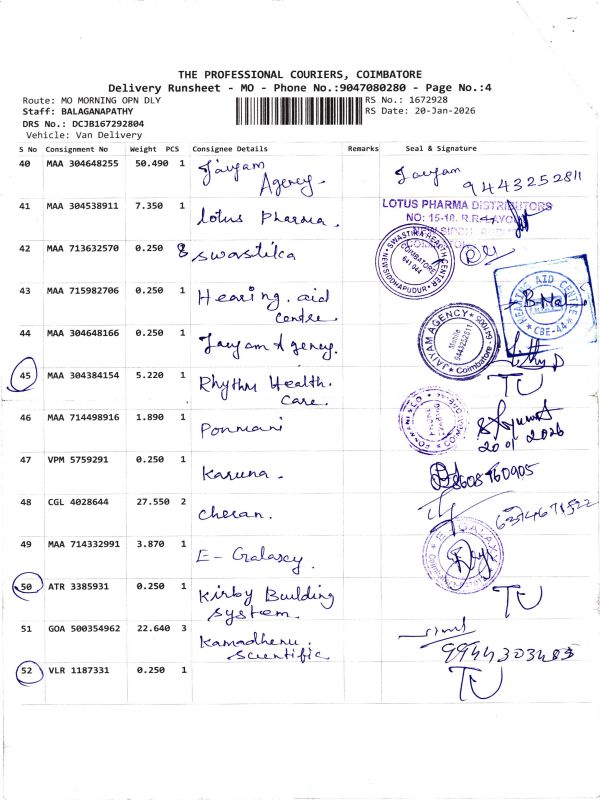 THE PROFESSIONAL COURIERS, COIMBATORE
Delivery Runsheet - MO - Phone No.:9047080280 - Page No.:4
Route: MO MORNING OPN DLY
RS No.: 1672928
Staff: BALAGANAPATHY
RS Date: 20-Jan-2026
DRS No.: DCJB167292804
Vehicle: Van Delivery
S No Consignment No Weight PCS Consignee Details Remarks Seal & Signature
40 MAA 304648255 50.490 1 Jaiyam Agency. Jaiyam 9443252811
41 MAA 304538911 7.350 1 Lotus Pharma. LOTUS PHARMA DISTRIBUTORS
NO: 15-18, R.R.
42 MAA 713632570 0.250 1 Swastika SWASTIKA HEALTH CENTER COIMBATORE 641 044
43 MAA 715982706 0.250 1 Hearing. aid centre. HEARING AID CENTRE CBE-44
44 MAA 304648166 0.250 1 Jaiyam Agency. JAIYAM AGENCY Mobile 9443252811 Coimbatore
45 MAA 304384154 5.220 1 Rhythm Health. Care. TU
46 MAA 714498916 1.890 1 Ponmani 20 01 2026
47 VPM 5759291 0.250 1 Karuna. 8608960905
48 CGL 4028644 27.550 2 Cheran.
49 MAA 714332991 3.870 1 E- Galaxy.
50 ATR 3385931 0.250 1 Kirby Building System. TU
51 GOA 500354962 22.640 3 Kamadhenu. Scientific
52 VLR 1187331 0.250 1 TU